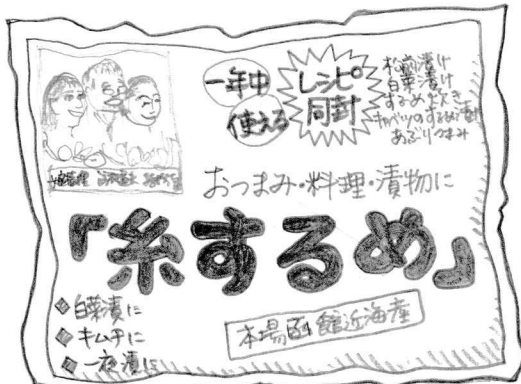 一年中
使える
レシピ
同封
松前漬け
白菜漬け
キャベツのするめ漬け
あぶりつまみ
おつまみ・料理・漬物に
「糸するめ」
◆白菜漬に
◆キムチに
◆一夜漬に
本場函館近海産